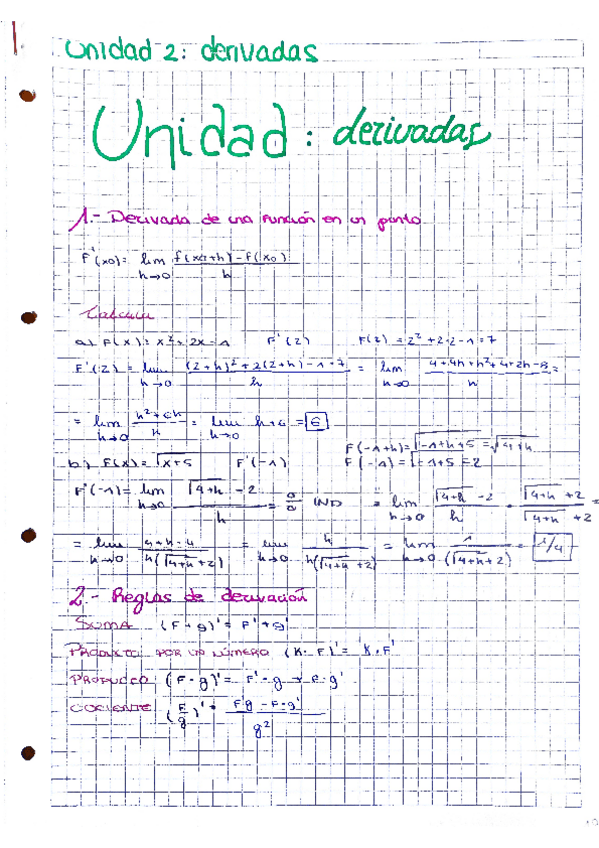 Unidad 2: derivadas
Unidad: derivadas
1.- Derivada de una función en un punto
F'(x0)= lim f(x0+h)-F(x0)
h→0 h
Calcula
a) F(x)= x²+2x-1 F'(2) F(2)=2²+2·2-1=7
F'(2)= lim (2+h)²+2(2+h)-1-7 = lim 4+4h+h²+4+2h-8 =
h→0 h h→0 h
= lim h²+6h = lim h+6 = 6
h→0 h h→0
F(-1+h)=√-1+h+5 = √4+h
b) F(x)= √x+5 F'(-1) F(-1)=√-1+5 = 2
F'(-1)= lim √4+h - 2 = 0/0 IND = lim √4+h - 2 · √4+h + 2 =
h→0 h h→0 h √4+h + 2
= lim 4+h-4 = lim h = lim 1 = 1/4
h→0 h(√4+h+2) h→0 h(√4+h+2) h→0 (√4+h+2)
2.- Reglas de derivación
SUMA (F+g)'= F'+g'
PRODUCTO POR UN NÚMERO (K·F)'= K·F'
PRODUCTO (F·g)'= F'·g + F·g'
COCIENTE (F/g)'= F'g - F·g'
g²